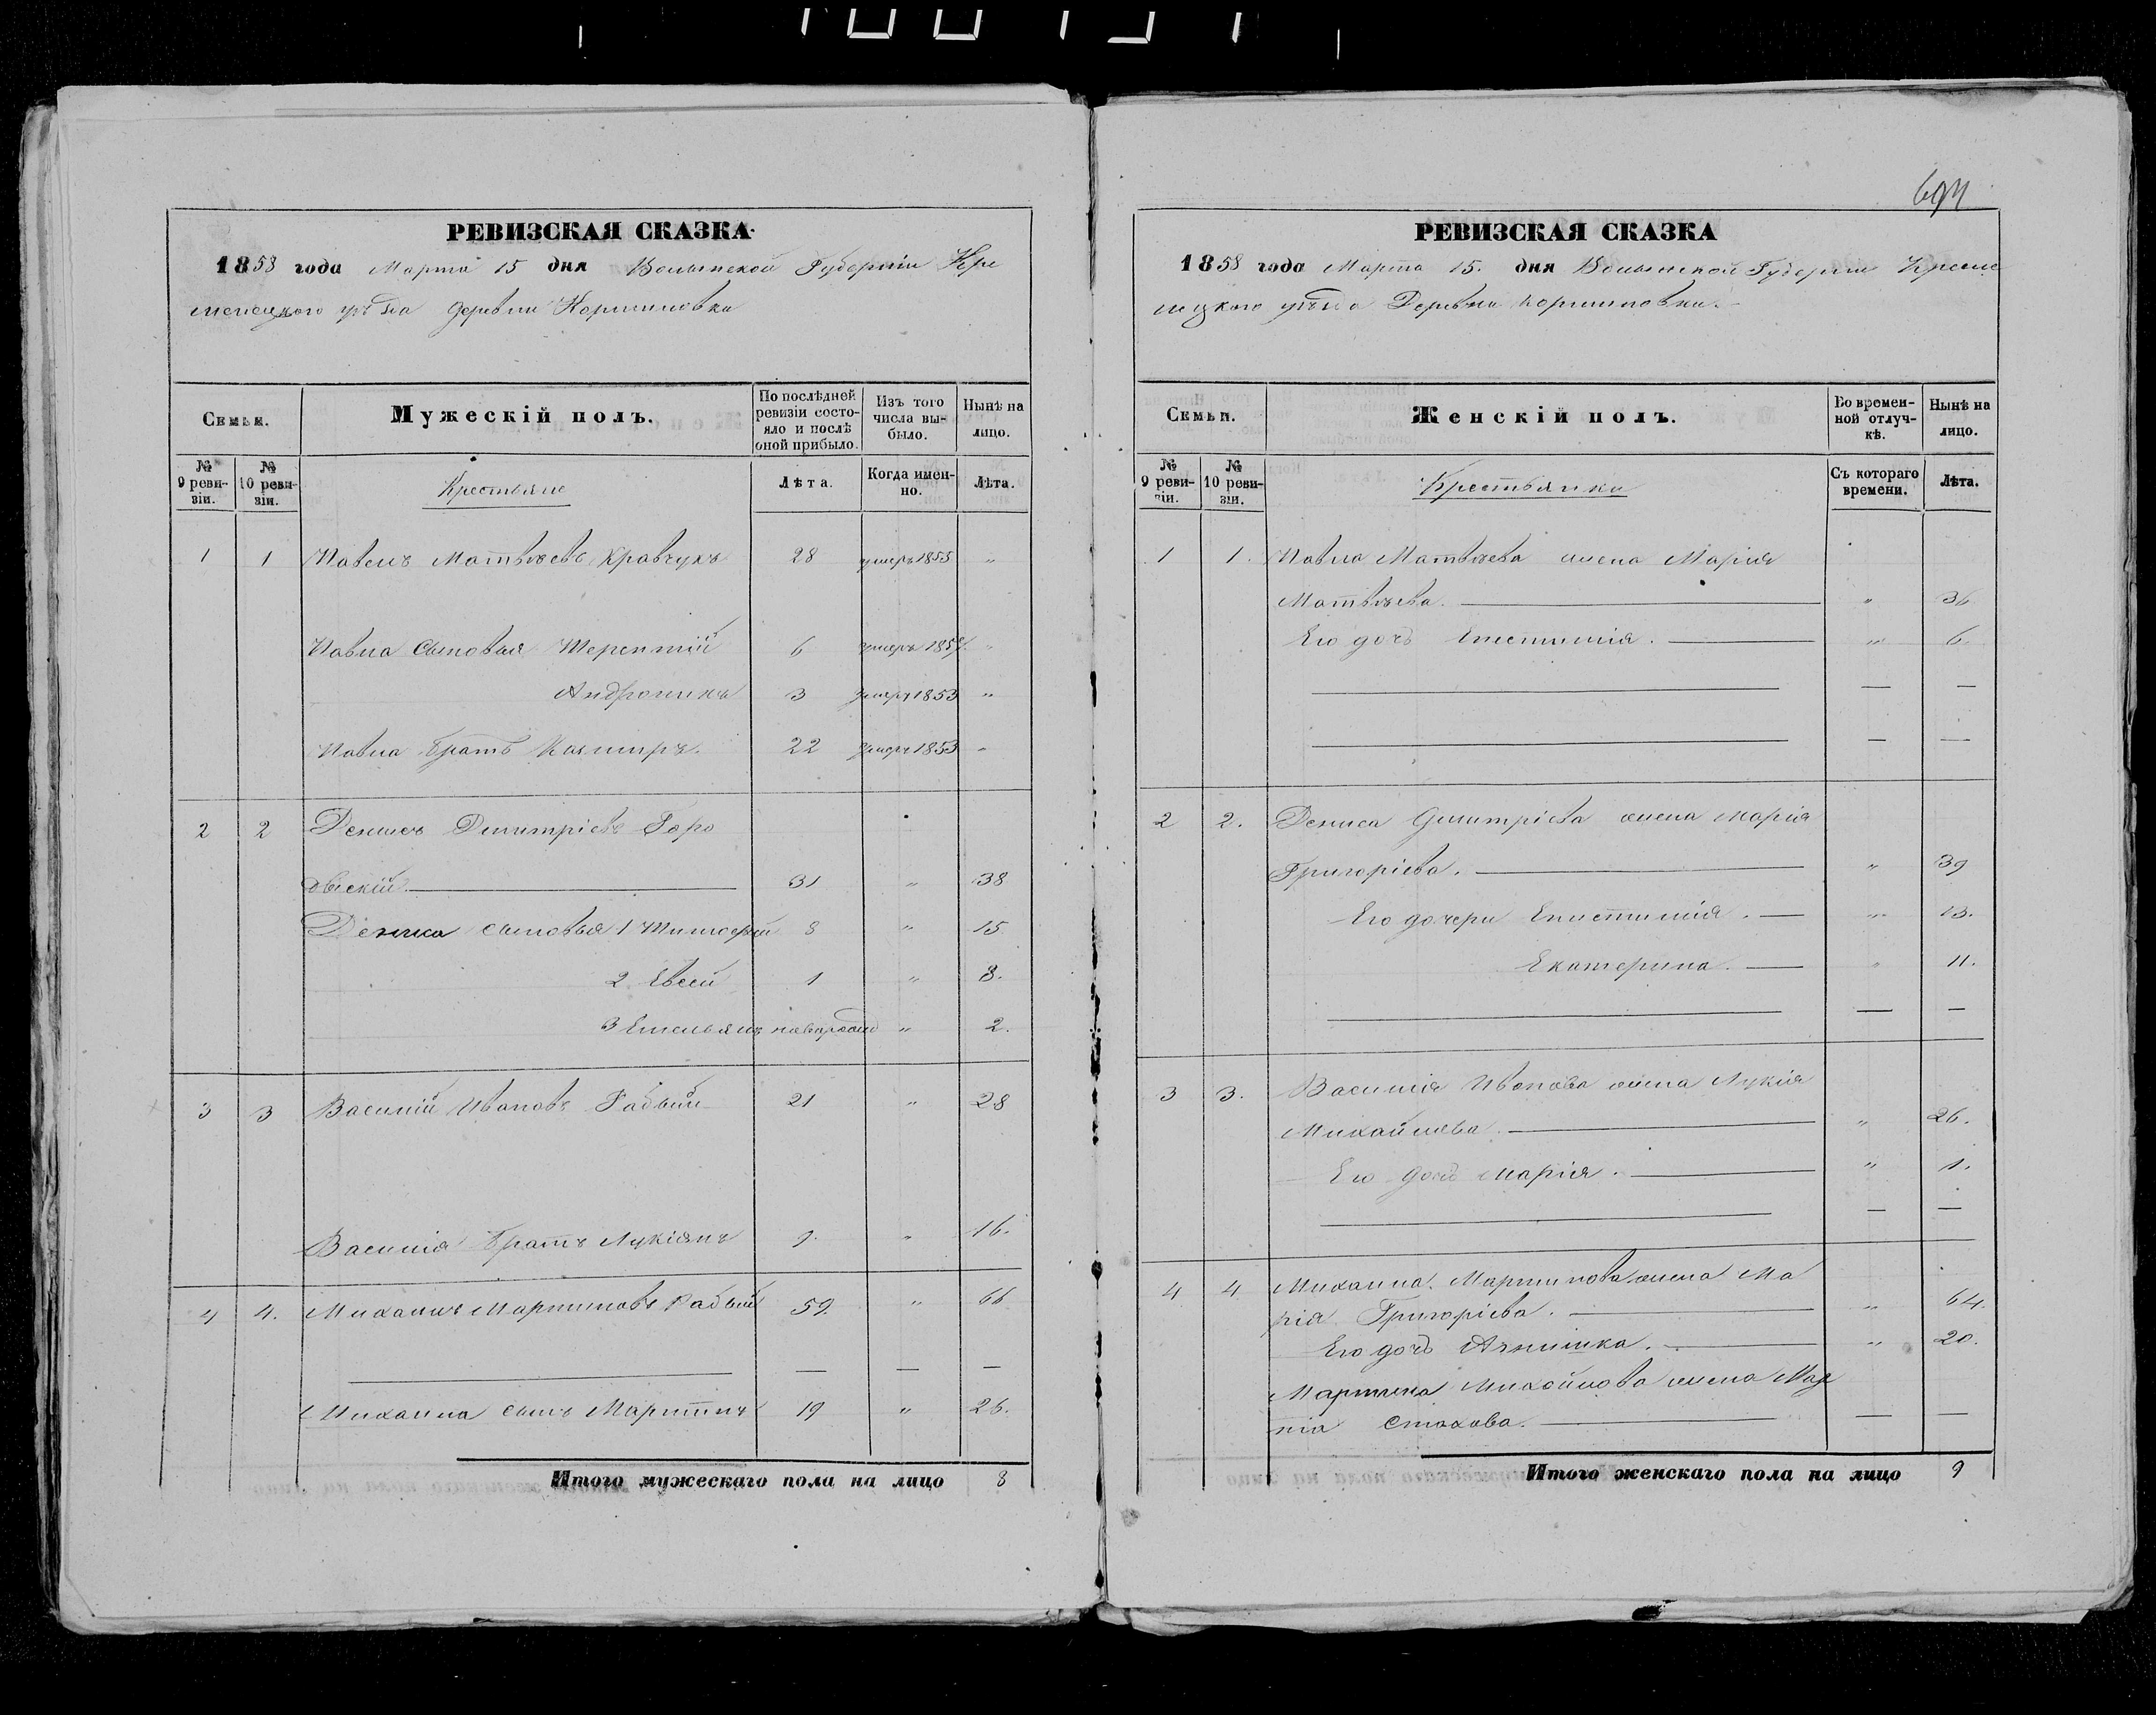 694
РЕВИЗСКАЯ СКАЗКА
1858 года Марта 15 дня Волынской Губерніи Кре
менецкого уѣзда деревни Коршиловка
Семьи.
Мужескій полъ.
По послѣдней ревизіи состояло и послѣ оной прибыло.
Изъ того числа выбыло.
Нынѣ на лицо.
№ 9 ревизіи.
№ 10 ревизіи.
Крестьяне
Лѣта.
Когда именно.
Лѣта.
1 1 Павелъ Матвѣевъ Кравчукъ 28 умеръ 1855 "
Павла сыновья Терентій 6 умеръ 185 "
Андроникъ 3 умеръ 1853 "
Павла братъ 22 умеръ 1853 "
2 2 Денисъ Димитріевъ Горо
дыскій 31 " 38
Дениса сыновья 1 Тимофей 8 " 15
2 Евсей 1 " 8.
3 Емельянъ новорожд " 2.
3 3 Василій Ивановъ Рабый 21 " 28
Василія братъ Лукіянъ 9. " 16.
4 4. Михаилъ Мартиновъ Рабый 59 " 66
— — —
Михаила сынъ Мартинъ 19 " 26.
Итого мужескаго пола на лицо 8
РЕВИЗСКАЯ СКАЗКА
1858 года Марта 15. дня Волынской Губерніи Креме
нецкого уѣзда Деревни Коршиловки.
Семьи.
Женскій полъ.
Во временной отлучкѣ.
Нынѣ на лицо.
№ 9 ревизіи.
№ 10 ревизіи.
Крестьянки
Съ котораго времени.
Лѣта.
1 1. Павла Матвѣева жена Марія
Матвѣева. " 36
Его дочь Епистимія. " 6.
— —
— —
2 2. Дениса Димитріева жена Марія
Григоріева. " 39
Его дочери Епистимія. " 13.
Екатерина. " 11.
— —
3 3. Василія Иванова жена Лукія
Михайлова. " 26.
Его дочь Марія. " 1.
— —
4 4 Михаила Мартинова жена Ма
рія Григоріева. " 64.
Его дочь " 20.
Мартина Михайлова жена Мар
Стахова. — —
Итого женскаго пола на лицо 9